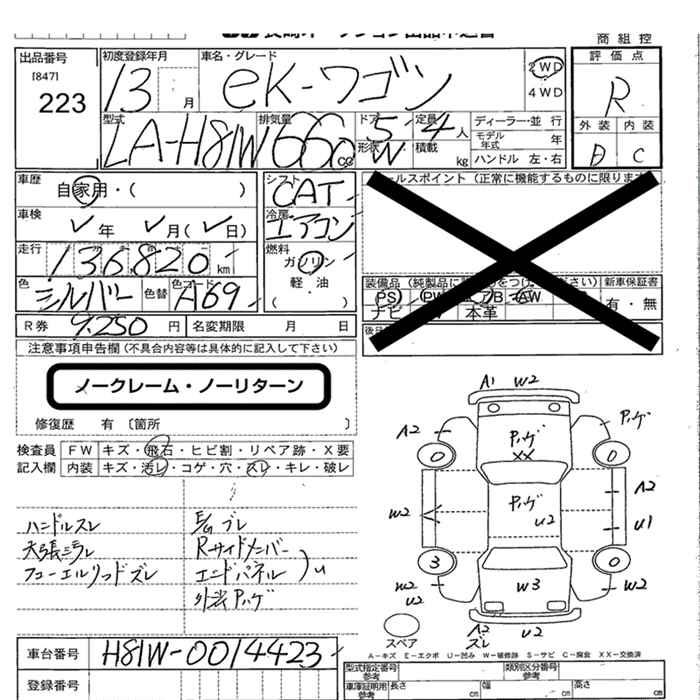 商 組 控
出品番号
[847]
223
初度登録年月
13 月
車名・グレード
eK-ワゴン
2WD
4WD
評 価 点
R
外 装 内 装
D C
型式
LA-H81W
排気量
660 cc
ドア 5
形状 W
定員 4 人
積載 kg
ディーラー・並 行
モデル年式 年
ハンドル 左・右
車歴
自家用・( )
車検
年 月 ( 日)
走行
136,820 km
色
シルバー
色替
色コード
A69
シフト
CAT
冷房
エアコン
燃料
ガソリン
軽・油
( )
セールスポイント (正常に機能するものに限ります
新車保証書
有・無
PS
ナビ
本革
R券 9,250 円 名変期限 月 日
注意事項申告欄 (不具合内容等は具体的に記入して下さい)
ノークレーム・ノーリターン
修復歴 有 〔箇所 〕
検査員
記入欄
FW キズ・飛石・ヒビ割・リペア跡・X要
内装 キズ・汚レ・コゲ・穴・スレ・キレ・破レ
ハンドルスレ
天張ミラレ
フューエルリッドズレ
Rサイドメンバー
エンドパネル
U
外装 ハゲ
A1 W2
A2
ハゲ
ハゲ
XX
0
0
ハゲ
U2
W2
A2
U1
3
0
W2
U2
W3
W2
スペア
A2
ズレ
U2
A-キズ E-エクボ U-凹み W-補修跡 S-サビ C-腐食 XX-交換済
車台番号
H81W-0014423
登録番号
型式指定番号
参考
類別区分番号
参考
車庫証明用
参考
長さ cm
幅 cm
高さ cm